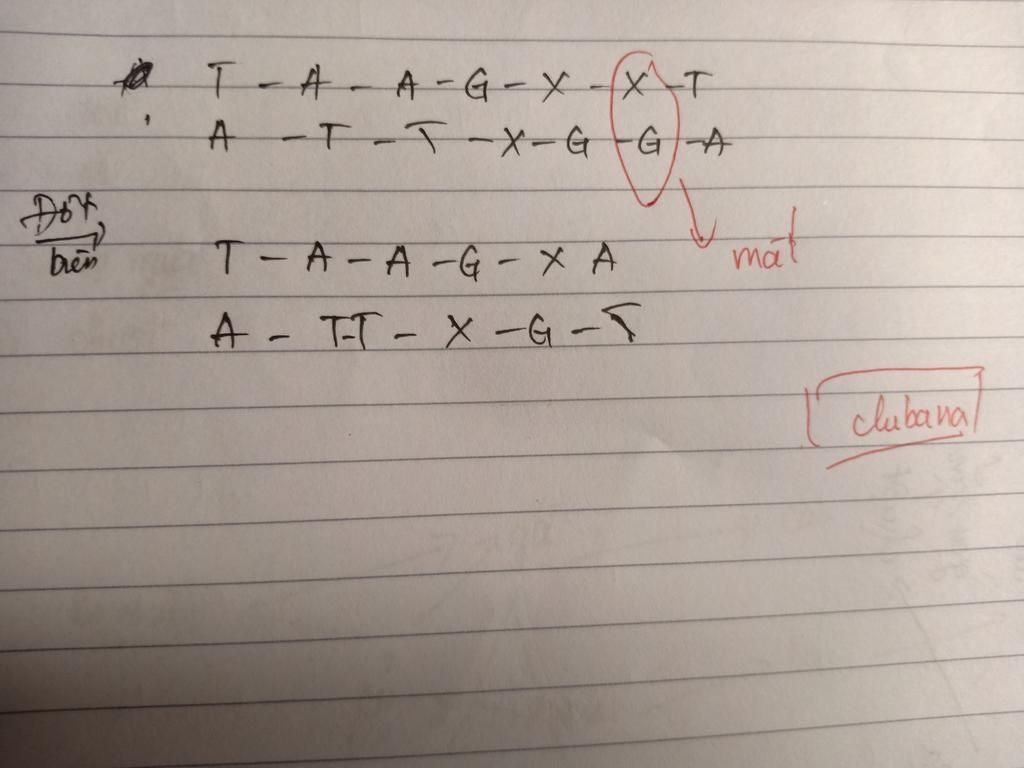 T - A - A - G - X - X - T
A - T - T - X - G - G - A
Đột
biến
mất
T - A - A - G - X A
A - T-T - X - G - T
clubana